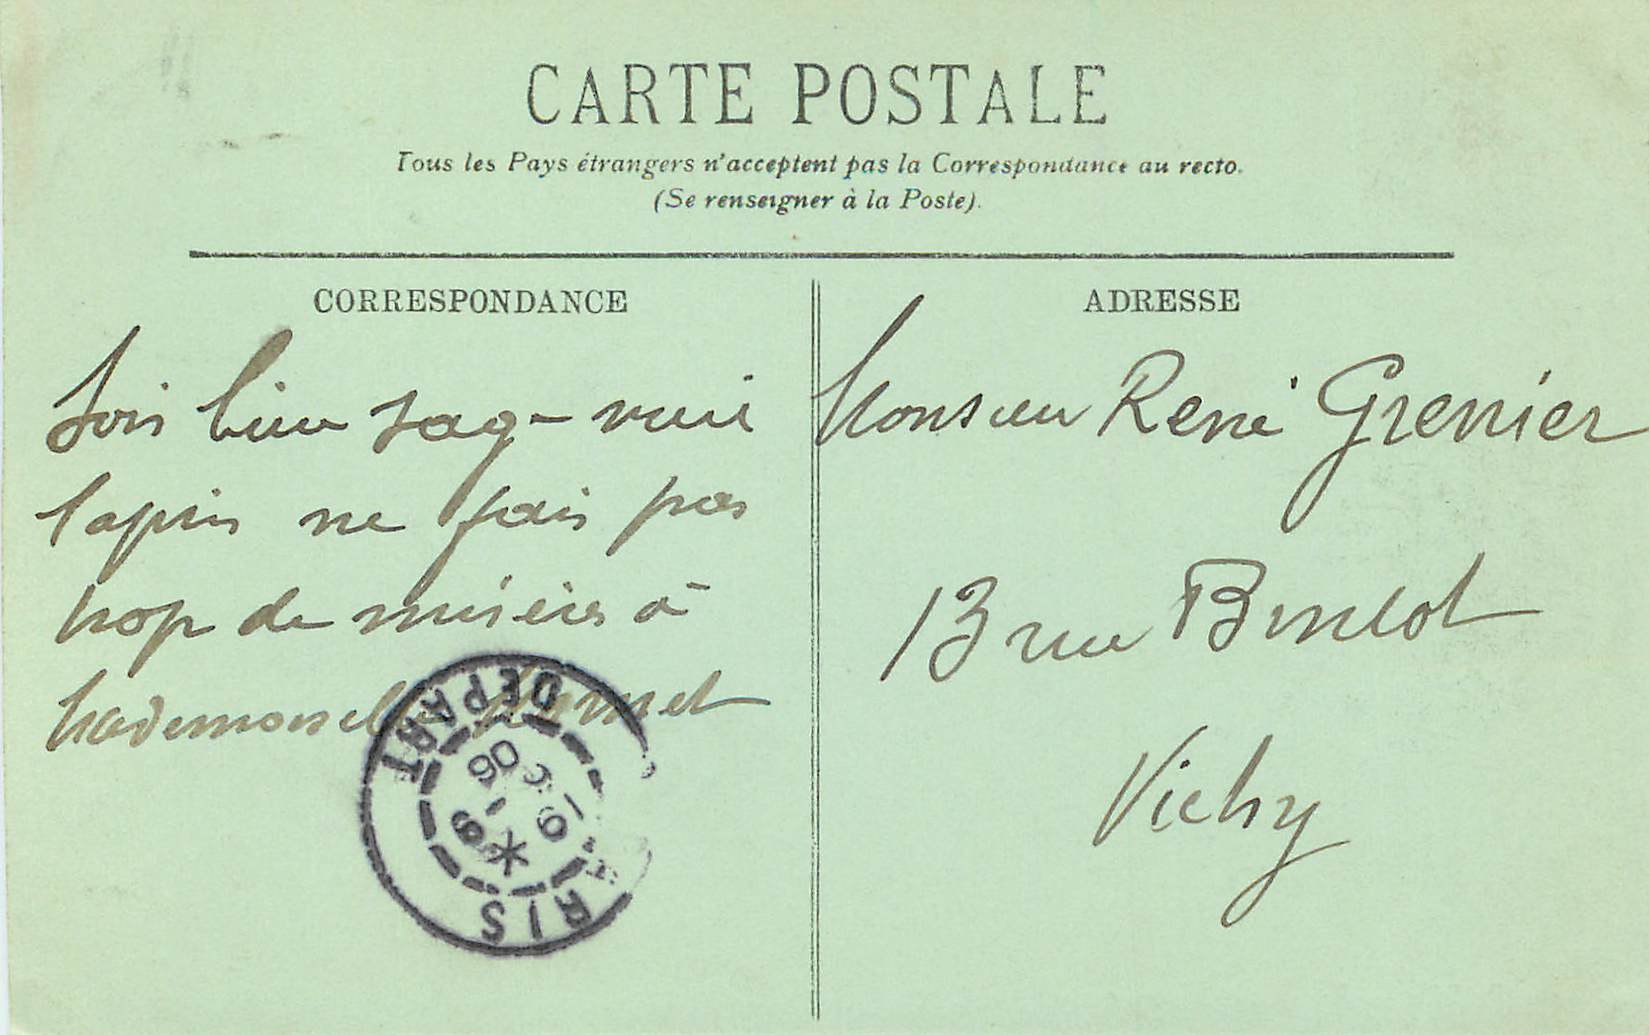 CARTE POSTALE
Tous les Pays étrangers n'acceptent pas la Correspondance au recto.
(Se renseigner à la Poste).
CORRESPONDANCE
Sois bien sage mon
lapin ne fais pas
trop de misères à
Mademoiselle
PARIS DEPART
06
ADRESSE
Monsieur René Grenier
13 rue
Vichy